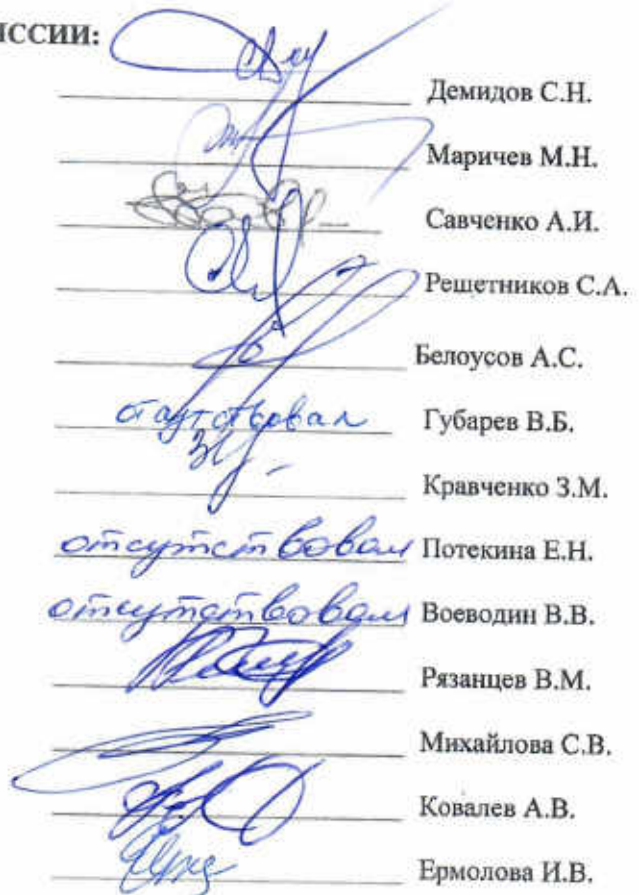 ИССИИ:
Демидов С.Н.
Маричев М.Н.
Савченко А.И.
Решетников С.А.
Белоусов А.С.
отсутствовал Губарев В.Б.
Кравченко З.М.
отсутствовал Потекина Е.Н.
отсутствовал Воеводин В.В.
Рязанцев В.М.
Михайлова С.В.
Ковалев А.В.
Ермолова И.В.